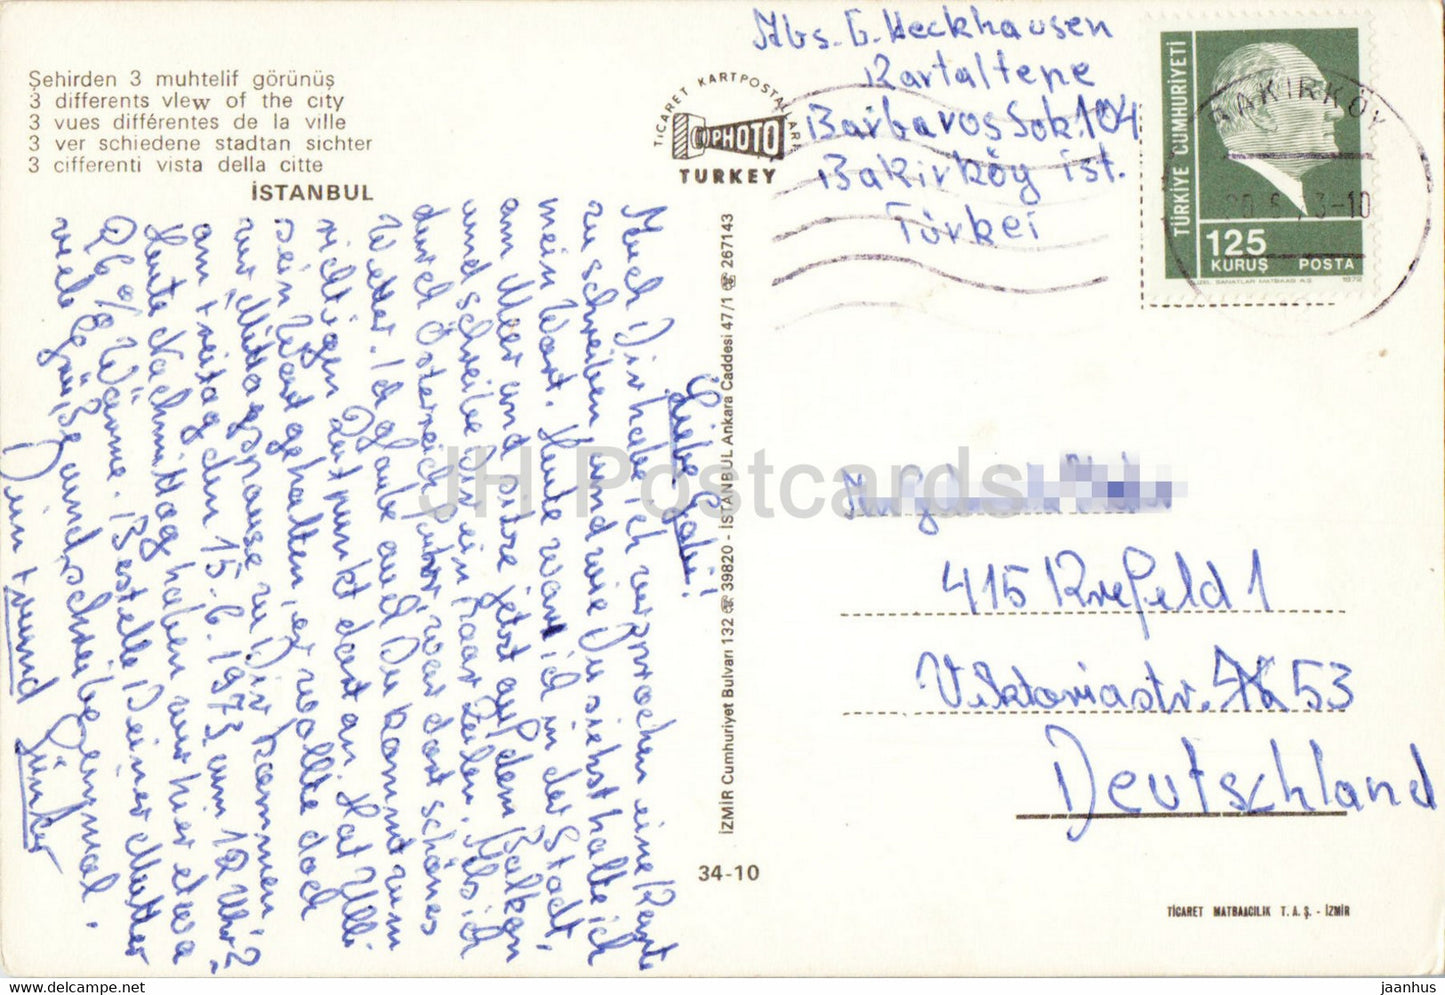 Şehirden 3 muhtelif görünüş
3 differents vlew of the city
3 vues différentes de la ville
3 ver schiedene stadtan sichter
3 cifferenti vista della citte
İSTANBUL
TİCARET KARTPOSTALLARI
PHOTO
TURKEY
Abs. G. Heckhausen
Kartaltepe
Barbaros Sok. 104
Bakirköy ist.
Türkei
TÜRKİYE CUMHURİYETİ
125
KURUŞ POSTA
1972
BAKIRKÖY
Liebe Gabi!
Auch Dir habe ich versprochen eine Karte
zu schreiben und wie Du siehst halte ich
mein Wort. Heute war ich in der Stadt,
am Meer und sitze jetzt auf dem Balkon
und schreibe Dir ein paar Zeilen. Als ich
durch Österreich fuhr, war dort schönes
Wetter. Ich glaube auch Du kommst zum
richtigen Zeitpunkt dort an. Hat Ulli
sein Wort gehalten, er wollte doch
zur "Mittagspause zu Dir kommen"?
am Freitag den 15.6.1973 um 12 Uhr?
Heute Nachmittag haben wir hier etwa
Wärme. Bestelle Deiner Mutter
viele Grüße und schreibe einmal.
Dein Freund Günter
İZMİR Cumhuriyet Bulvarı 132 ☎ 39820 - İSTANBUL Ankara Caddesi 47/1 ☎ 267143
34-10
JH Postcards
415 Krefeld 1
Viktoriastr. 53
Deutschland
TİCARET MATBAACILIK T. A. Ş. - İZMİR
eBay - Delcampe.net
jaanhus